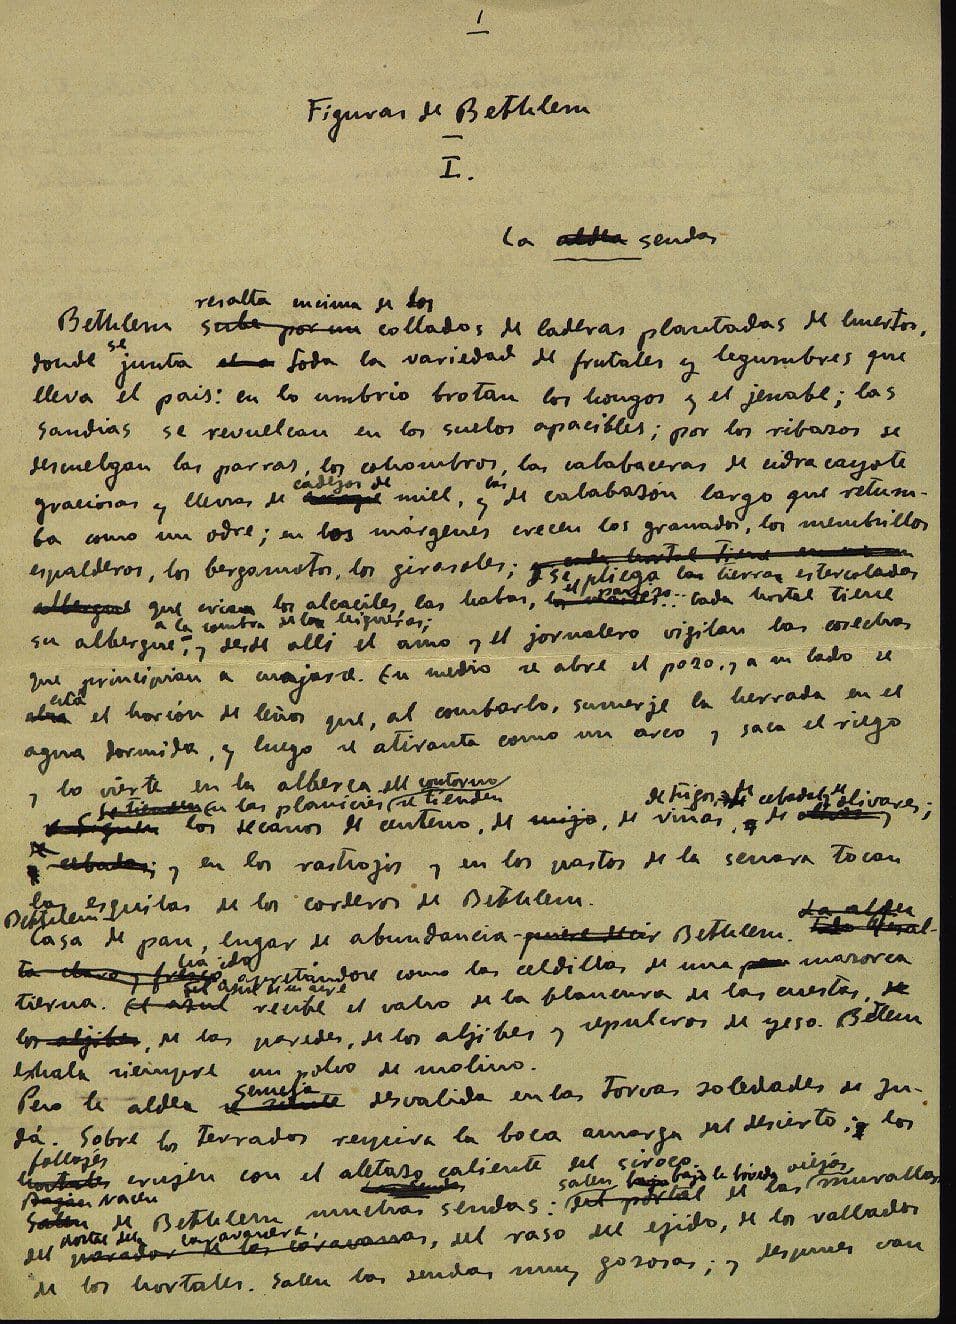 1
Figuras de Bethlem
I.
La aldea sendas
resalta encima de los
Bethlem sube por un collados de laderas plantadas de huertos,
donde se junta toda la variedad de frutales y legumbres que
lleva el pais: en lo umbrío brotan los hongos y el jenabe; las
sandias se revuelcan en los suelos apacibles; por los ribazos se
descuelgan las parras, los cohombros, las calabaceras de cidracayote
cadejos de las
graciosas y llenas de miel, y de calabazón largo que retum-
ba como un odre; en los márgenes crecen los granados, los membrillos
espalderos, los bergamotos, los girasoles; cada hortal tiene
se pliega las tierras estercoladas
albergue que crian los alcaciles, las habas, el panizo... Cada hortal tiene
a la sombra de las higueras;
su albergue, y desde alli el amo y el jornalero vigilan las cosechas
que principian a cuajarse. En medio se abre el pozo, y a un lado se
está
alza el horcón de leños que, al combarlo, sumerje la herrada en el
agua dormida, y luego se atiranta como un arco y saca el riego
y lo vierte en la alberca del contorno
Se tienden En las planicies se tienden de trigos, de cebadas, de olivares;
los secanos de centeno, de mijo, de viñas, de
cebada; y en los rastrojos y en los pastos de la senara tocan
las esquilas de los corderos de Bethlem.
Bethlem
Casa de pan, lugar de abundancia quiere decir Bethlem. La aldea
ha ido
ta claro y fresco apretándose como las celdillas de una mazorca
del azul de su aire
tierna. El azul recibe el valvo de la blancura de las cuestas, de
los aljibes, de las paredes, de los aljibes y sepulcros de yeso. Betlem
exhala siempre un polvo de molino.
semeja
Pero la aldea se siente desvalida en las torvas soledades de Ju-
dá. Sobre los terrados respira la boca amarga del desierto; y los
follajes
hortales crujen con el aletazo caliente del siroco.
nacen salen bajo bajo la bóveda viejas
Salen de Bethlem muchas sendas: del portal de las murallas
hostal del caravanera,
del parador de las caravanas, del raso del ejido, de los vallados
de los hortales. Salen las sendas muy gozosas; y despues van